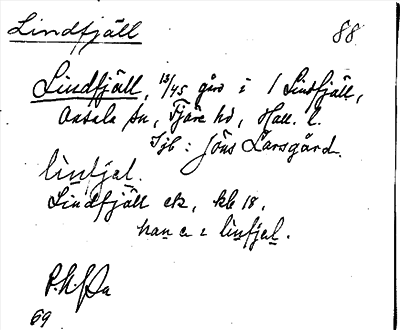 Lindfjäll 88
Lindfjäll, 13/45 gård i 1 Lindfjäll,
Onsala sn, Fjäre hd, Hall. l.
Ijb: Jöns Larsgård.
linfjal.
Lindfjäll ek, kbl 18.
han e i linfjal.
69